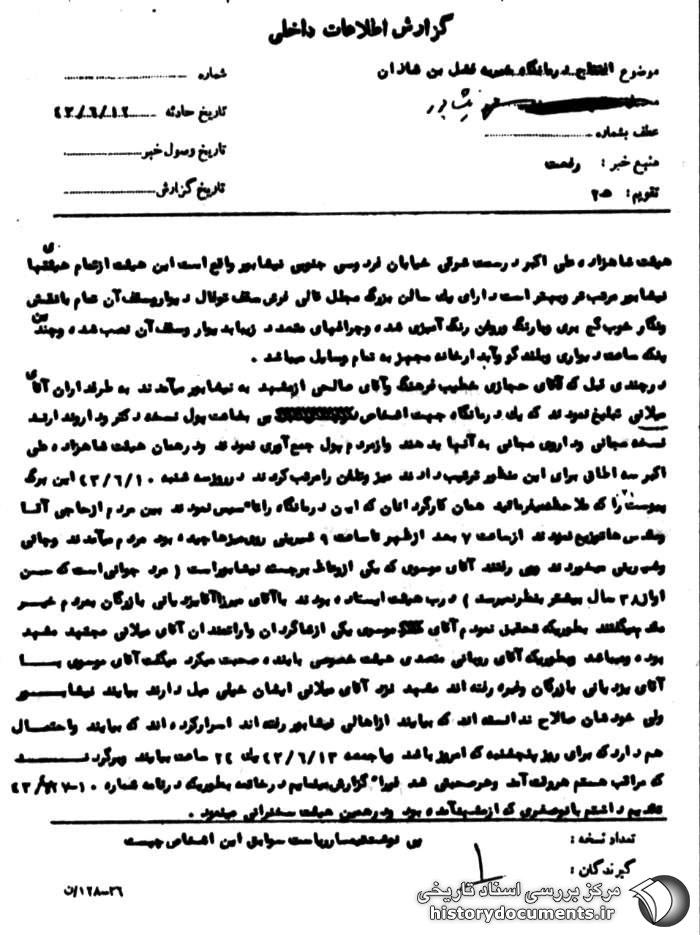 گزارش اطلاعات داخلی
موضوع افتتاح درمانگاه خیریه فضل بن شاذان
نیشابور
عطف بشماره
منبع خبر : رفعت
تقویم : ۲-ه
شماره
تاریخ حادثه ۴۳/۶/۱۲
تاریخ وصول خبر
تاریخ گزارش
هیئت شاهزاده علی اکبر در سمت شرقی خیابان فردوسی جنوبی نیشابور واقع است این هیئت از تمام هیئتهای
نیشابور مرتب تر و بهتر است دارای یک سالن بزرگ مجلل قالی فرش سقف توفال دیوار و سقف آن تمام با نقش
ونگار خوب گچ بری و با رنگ و روغن رنگ آمیزی شده و چراغهای متعدد زیبا بدیوار و سقف آن نصب شده و چندین
پنکه ساعت دیواری و بلندگو و آبدارخانه مجهز به تمام وسایل میباشد .
در چندی قبل که آقای حجازی خطیب فرهنگ و آقای صالحی از مشهد به نیشابور میآمدند به طرفداران آقای
میلانی تبلیغ نمودند که یک درمانگاه جهت اشخاص بی بضاعت پول نسخه دکتر و دارو ندارند
نسخه مجانی و داروی مجانی به آنها بدهند و از مردم پول جمع آوری نمودند و در همان هیئت شاهزاده علی
اکبر سه اطاق برای این منظور ترتیب دادند میز و تلفن را مرتب کردند در روز سه شنبه ۴۳/۶/۱۰ این برگ
پیوست را که ملاحظه میفرمائید همان کارگردانان که این درمانگاه را تاسیس نمودند بین مردم از حاجی آقا
ومقدس ها توزیع نمودند از ساعت ۷ بعد از ظهر تا ساعت ۹ شیرینی روی میزها چیده بود مردم میآمدند و چائی
وشیرینی میخوردند و می رفتند آقای موسوی که یکی از وعاظ برجسته نیشابور است ( مرد جوانی است که حسن
او از ۳۸ سال بیشتر بنظر نمیرسد ) درب هیئت ایستاده بودند با آقای میرزا آقا یزدیانی بازرگان بمردم خیر
مقدم میگفتند بطوریکه تحقیق نمودم آقای موسوی یکی از شاگردان و ارادتمندان آقای میلانی مجتهد مشهد
بوده و میباشد و بطوریکه آقای متصدی هیئت خصوصی با بنده صحبت میکرد میگفت آقای موسوی بـا
آقای یزدیانی بازرگان و غیره رفته اند مشهد نزد آقای میلانی ایشان خیلی میل دارند بیایند نیشابـور
ولی خودشان صلاح ندانسته اند که بیایند از اهالی نیشابور رفته اند اسرار کرده اند که بیایند و احتمال
هم دارد که برای روز پنجشنبه که امروز باشد و یا جمعه ۴۳/۶/۱۳ یک ۲۴ ساعت بیایند و برگردنـد
که مراقب هستم هر وقت آمد و هر صحبتی شد فورا" گزارش مینمایم در خاتمه بطوریکه در نامه شماره
تقدیم داشتم که از مشهد آمده بود و در همین هیئت سخنرانی مینمود .
تعداد نسخه :
گیرندگان :
۱
پی نوشت تیمسار ریاست سوابق این اشخاص چیست
۱۲۸-۳۶/ن
مرکز بررسی اسناد تاریخی
historydocuments.ir